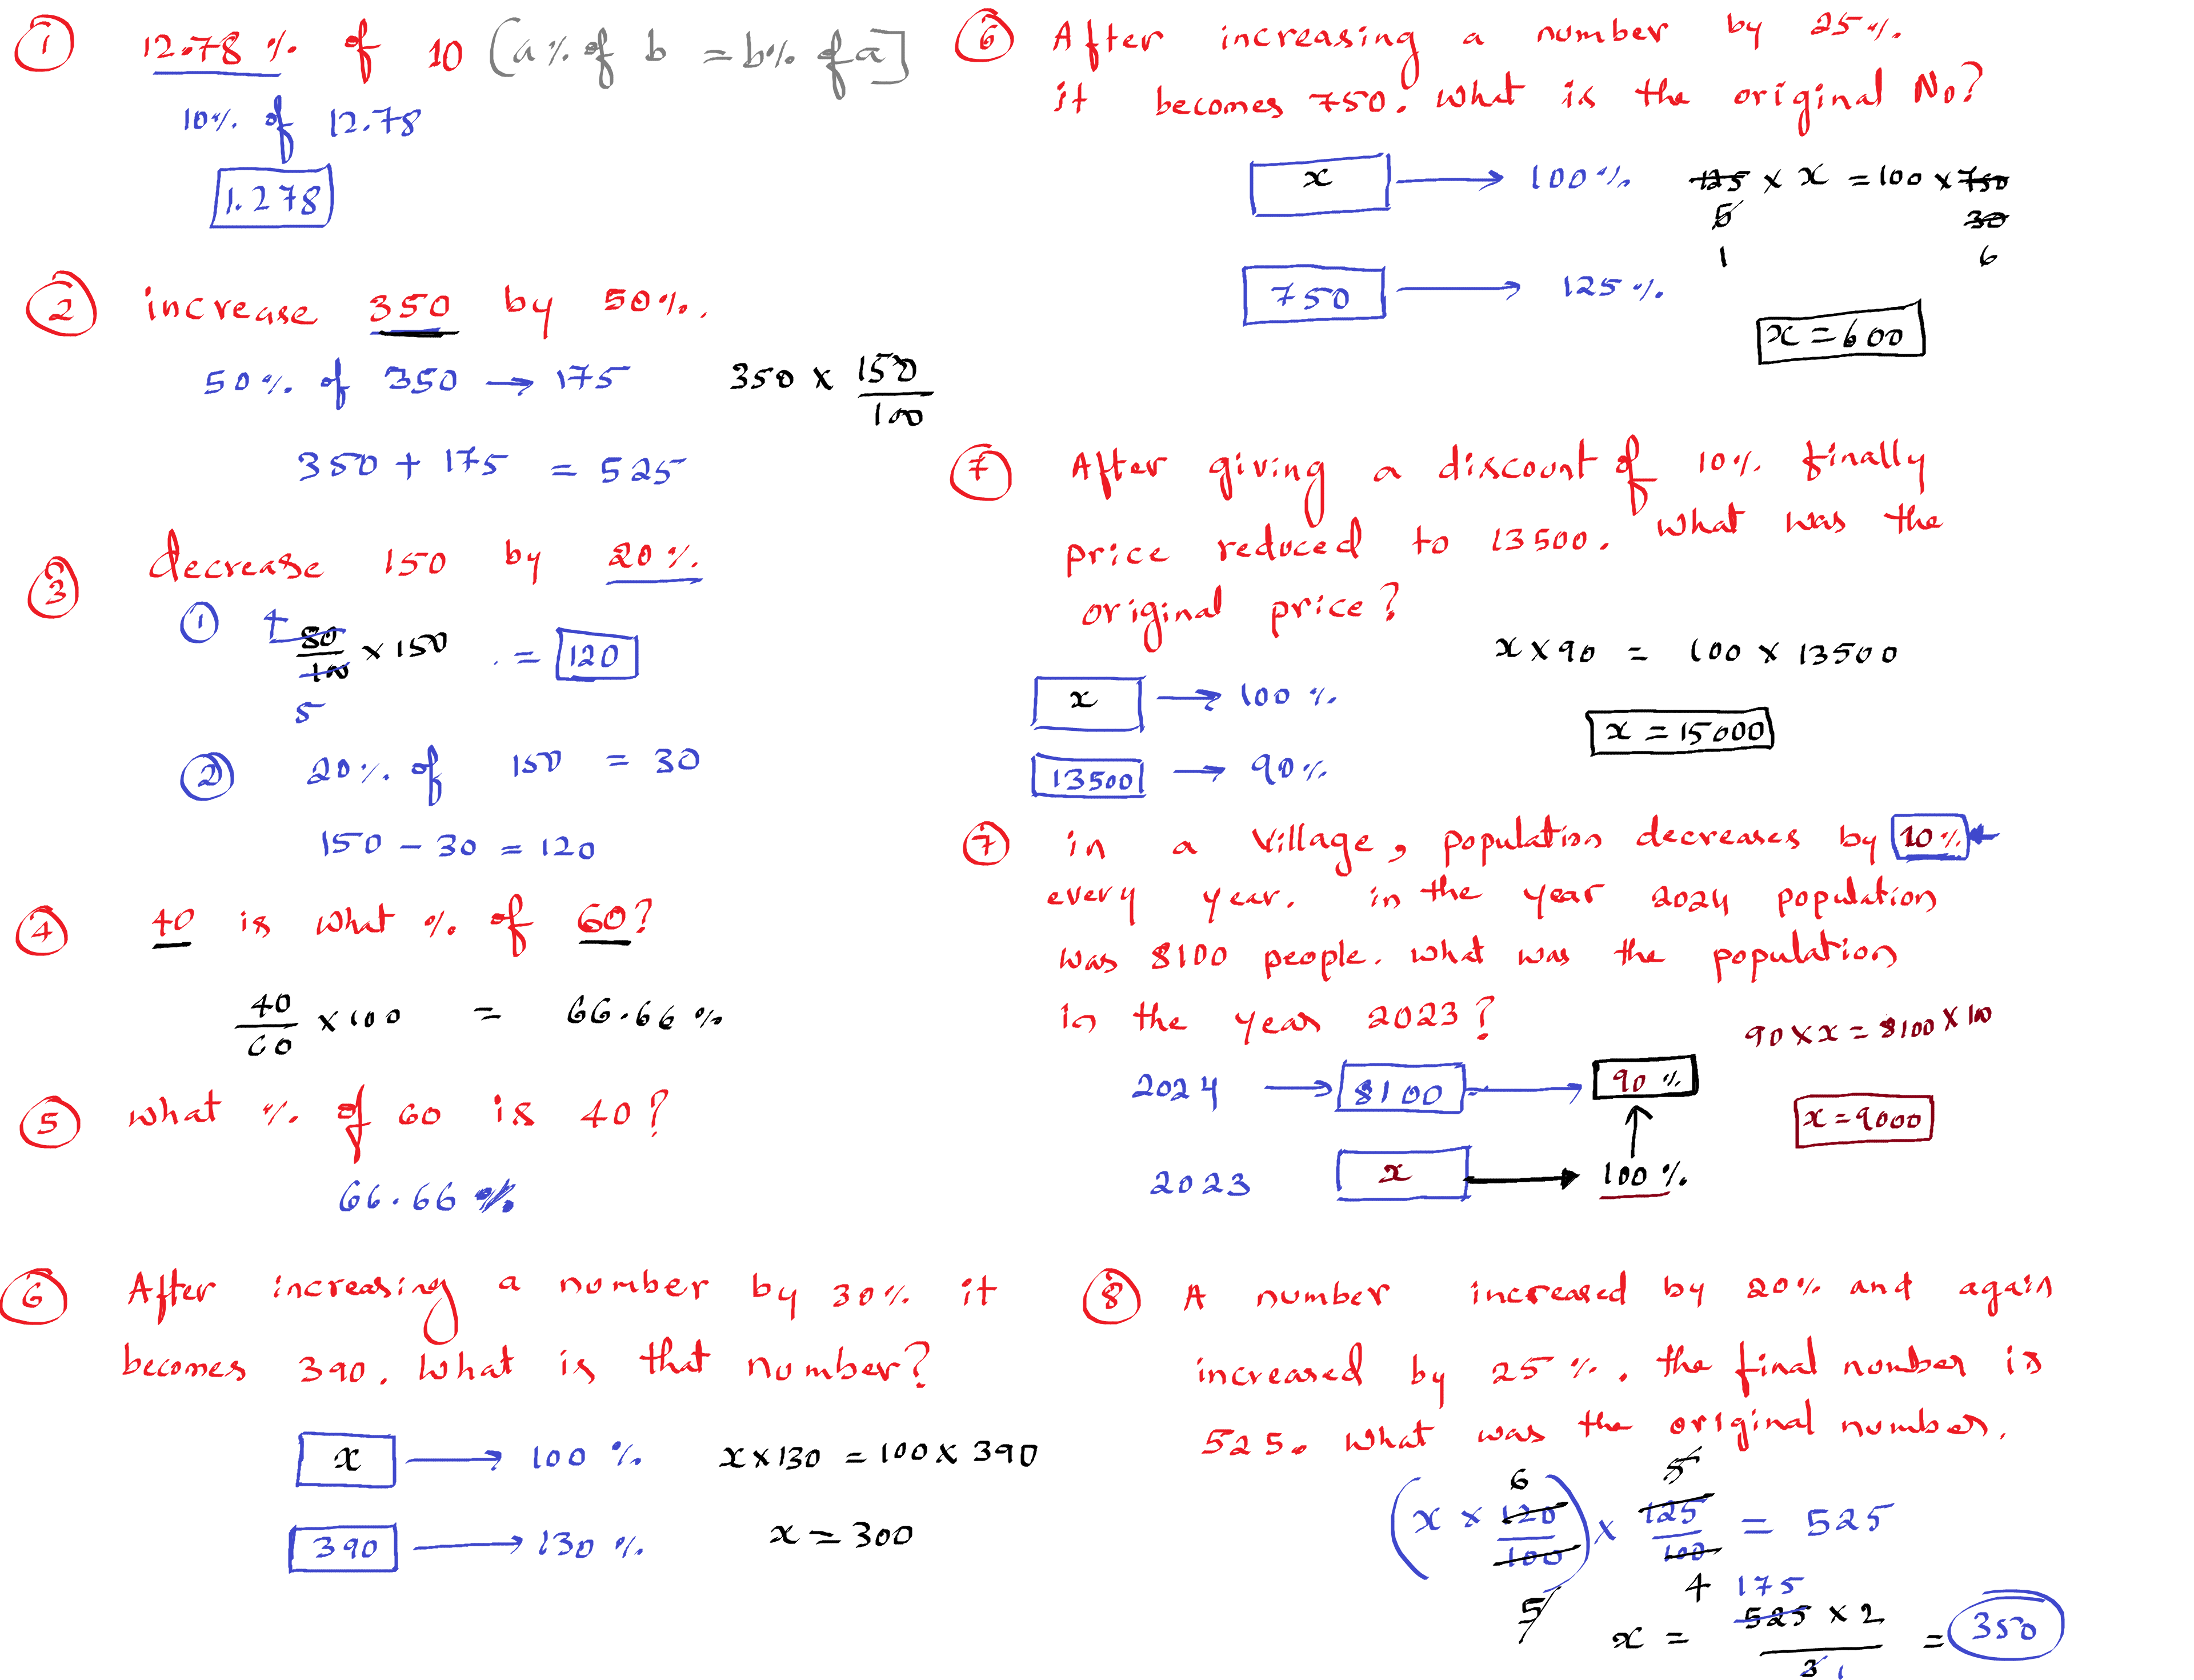 ① 12.78 % of 10 [a% of b = b% of a]
10% of 12.78
1.278
② increase 350 by 50%.
50% of 350 → 175 350 × 150/100
350 + 175 = 525
③ decrease 150 by 20%.
① 4 80/100 × 150 = 120
5
② 20% of 150 = 30
150 - 30 = 120
④ 40 is what % of 60?
40/60 × 100 = 66.66 %
⑤ what % of 60 is 40?
66.66 %
⑥ After increasing a number by 30% it
becomes 390. what is that number?
x → 100 % x × 130 = 100 × 390
390 → 130 % x = 300
⑥ After increasing a number by 25%.
it becomes 750. what is the original No?
x → 100% 125 × x = 100 × 750
5 30
1 6
750 → 125 %
x = 600
⑦ After giving a discount of 10% finally
price reduced to 13500. what was the
original price?
x × 90 = 100 × 13500
x → 100 %
x = 15000
13500 → 90%
⑦ in a village, population decreases by 10%
every year. in the year 2024 population
was 8100 people. what was the population
in the year 2023?
90 × x = 8100 × 100
2024 → 8100 → 90 %
x = 9000
2023 x → 100 %
⑧ A number increased by 20% and again
increased by 25 %. the final number is
525. what was the original number.
6 5
(x × 120/100) × 125/100 = 525
5 4 175
x = 525 × 2 / 3 1 = 350